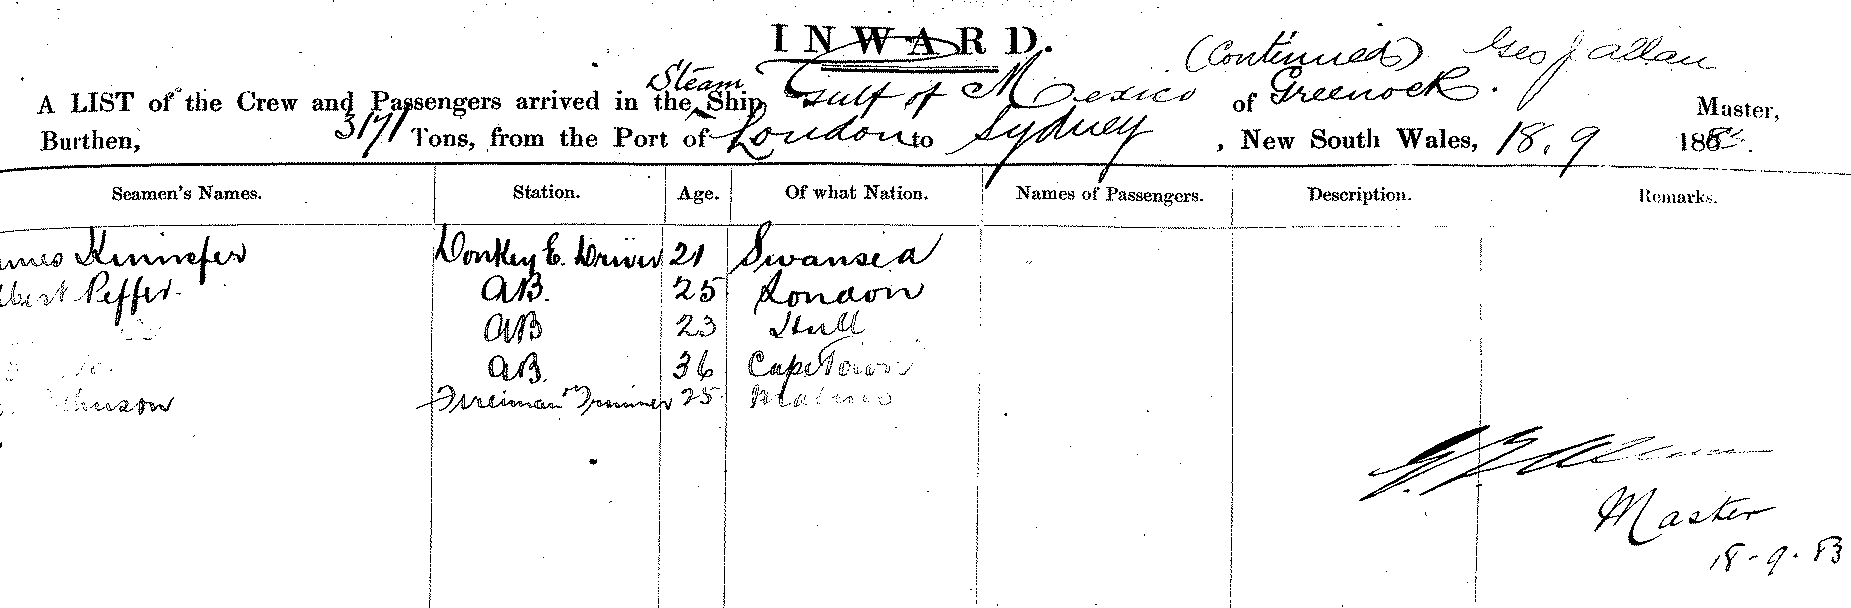 INWARD.
(Continued) Geo J Allan
Steam
A LIST of the Crew and Passengers arrived in the Ship Gulf of Mexico of Greenock. Master,
Burthen, 3171 Tons, from the Port of London to Sydney, New South Wales, 18.9 188
Seamen's Names. Station. Age. Of what Nation. Names of Passengers. Description. Remarks.
Donkey E. Driver 21 Swansea
Peffer. AB. 25 London
AB 23 Hull
AB. 36 Cape Town
Fireman Trimmer 25 Malmo
Master
18-9-83